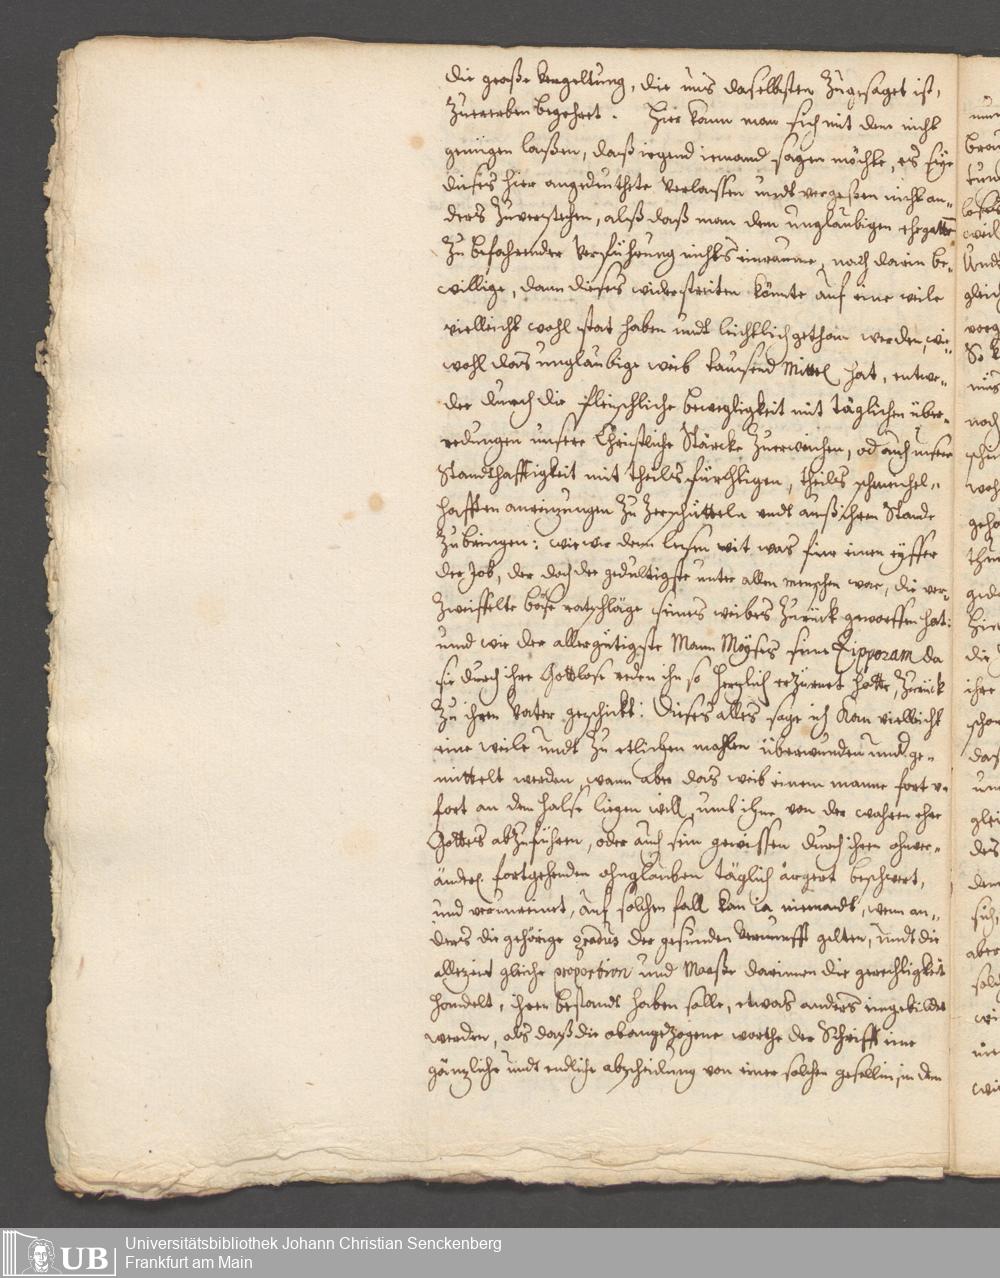 die große Vergeltung, die unß daselbsten zugesaget ist,
zuererben begehret. Hier kann man sich mit dem nicht
genügen laßen, daß irgend iemand sagen möchte, es seye
dieses hier angedeuthete Verlassen undt vergeßen nicht an-
ders zuverstehen, alß daß man dem unglaubigen ehegatten
zu befahrender Verführung nichts einraume, noch darin be-
willige, dann dieses widerstreiten könnte auf eine weile
vielleicht wohl stat haben undt leichtlich gethan werden, wie-
wohl das unglaubige weib tausend Mittel hat, entwe-
der durch die fleischliche beweglichkeit mit täglichen über-
redungen unsere Christliche Stärcke zuerweichen, od auch unsere
Standthafftigkeit mit theils fürchtigen, theils schmeichel-
hafften anreizungen zu zerschütteln undt auß ihrem Stande
zu bringen: wie wir denn lesen mit was für einen eyffer
der Job, der doch der gedultigste unter allen menschen war, die ver-
zweiffelte böse ratschläge seines weibes zurück geworffen hat:
und wie der allergütigste Mann Moyses seine Zipporam da
sie durch ihre Gottlose reden ihn so hertzlich erzürnet hatte, zurück
zu ihren Vater geschickt: Dieses alles sage ich kan vielleicht
eine weile undt zu etlichen mahlen überwunden undt ge-
mittelt werden, wann aber das weib einem manne fort v.
fort an dem halse liegen will, umb ihne von der wahren ehre
Gottes abzuführen, oder auch sein gewissen durch ihren ohnver-
änderl. fortgehenden ohnglauben täglich ärgert beschwert,
und verunreinet, auf solchen fall kan ia niemandt, wenn an-
ders die gehörige gradus der gesunden Vernunfft gelten, undt die
allezeit gleiche proportion und Maaße darinnen die gerechtigkeit
handelt, ihren bestandt haben solle, etwas anders eingebildet
werden, als daß die obangezogene worthe der Schrifft eine
gänzliche undt endliche abscheidung von einer solchen gesellin, in dem
Universitätsbibliothek Johann Christian Senckenberg
Frankfurt am Main
UB